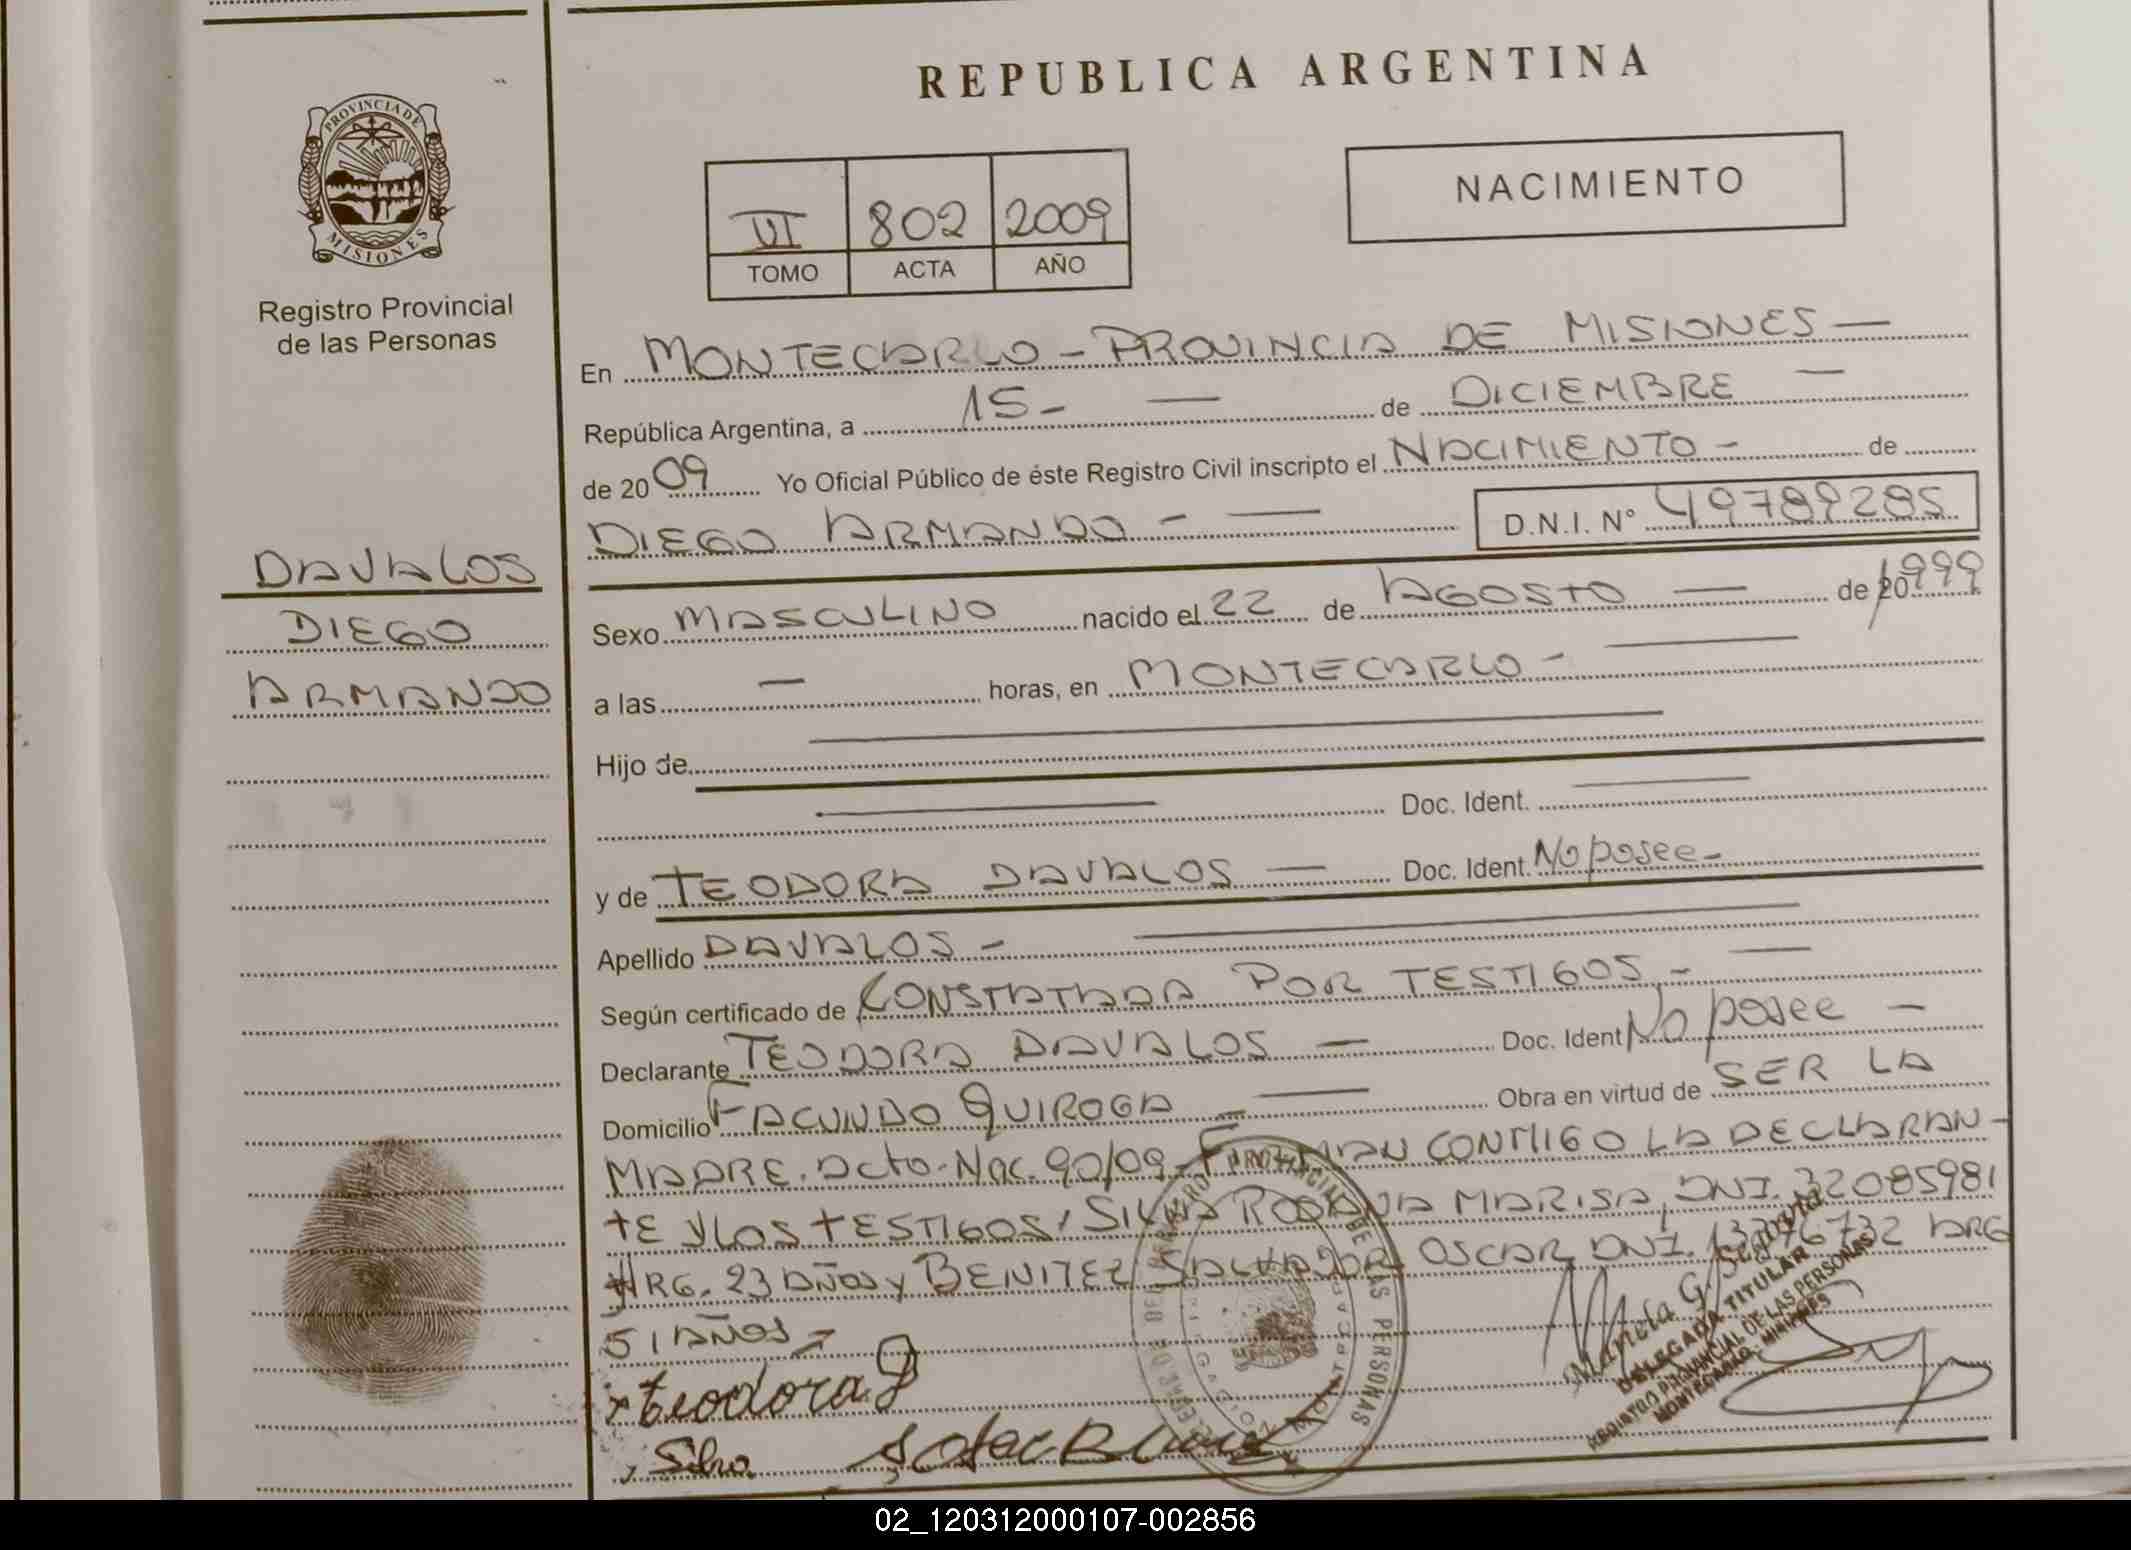 REPUBLICA ARGENTINA
PROVINCIA DE
MISIONES
Registro Provincial
de las Personas
VI 802 2009
TOMO ACTA AÑO
NACIMIENTO
DAVALOS
DIEGO
ARMANDO
En MONTECARLO - PROVINCIA DE MISIONES —
República Argentina, a 15 - — de DICIEMBRE —
de 2009 Yo Oficial Público de éste Registro Civil inscripto el NACIMIENTO - de
DIEGO ARMANDO - — D.N.I. Nº 49789285
Sexo MASCULINO nacido el 22 de AGOSTO — de 20 1999
a las — horas, en MONTECARLO - —
Hijo de —
— Doc. Ident. —
y de TEODORA DAVALOS — Doc. Ident. No posee -
Apellido DAVALOS - —
Según certificado de CONSTATADA POR TESTIGOS - —
Declarante TEODORA DAVALOS — Doc. Ident No posee —
Domicilio FACUNDO QUIROGA - — Obra en virtud de SER LA
MADRE. Dcto. Nac. 90/09 - FIRMAN CONMIGO LA DECLARAN-
TE Y LOS TESTIGOS, SILVA ROSANA MARISA, DNI. 32085981
ARG. 23 AÑOS y BENITEZ SALVADOR OSCAR DNI. ARG
51 AÑOS -
teodora D
Silva
DELEGADA TITULAR
REGISTRO PROVINCIAL DE LAS PERSONAS
MONTECARLO - MISIONES
02_120312000107-002856